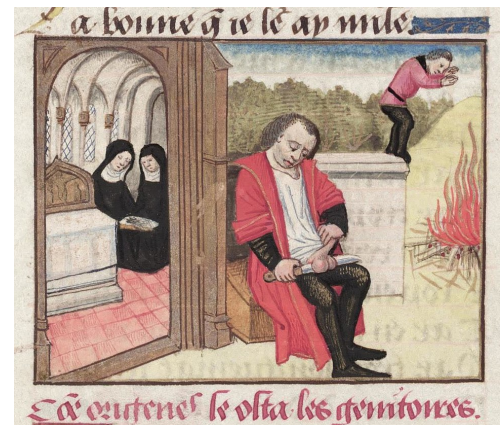 La bonne q̃ ie lẽ ay miſe
Cõe origenes ſe oſta les genitoires.